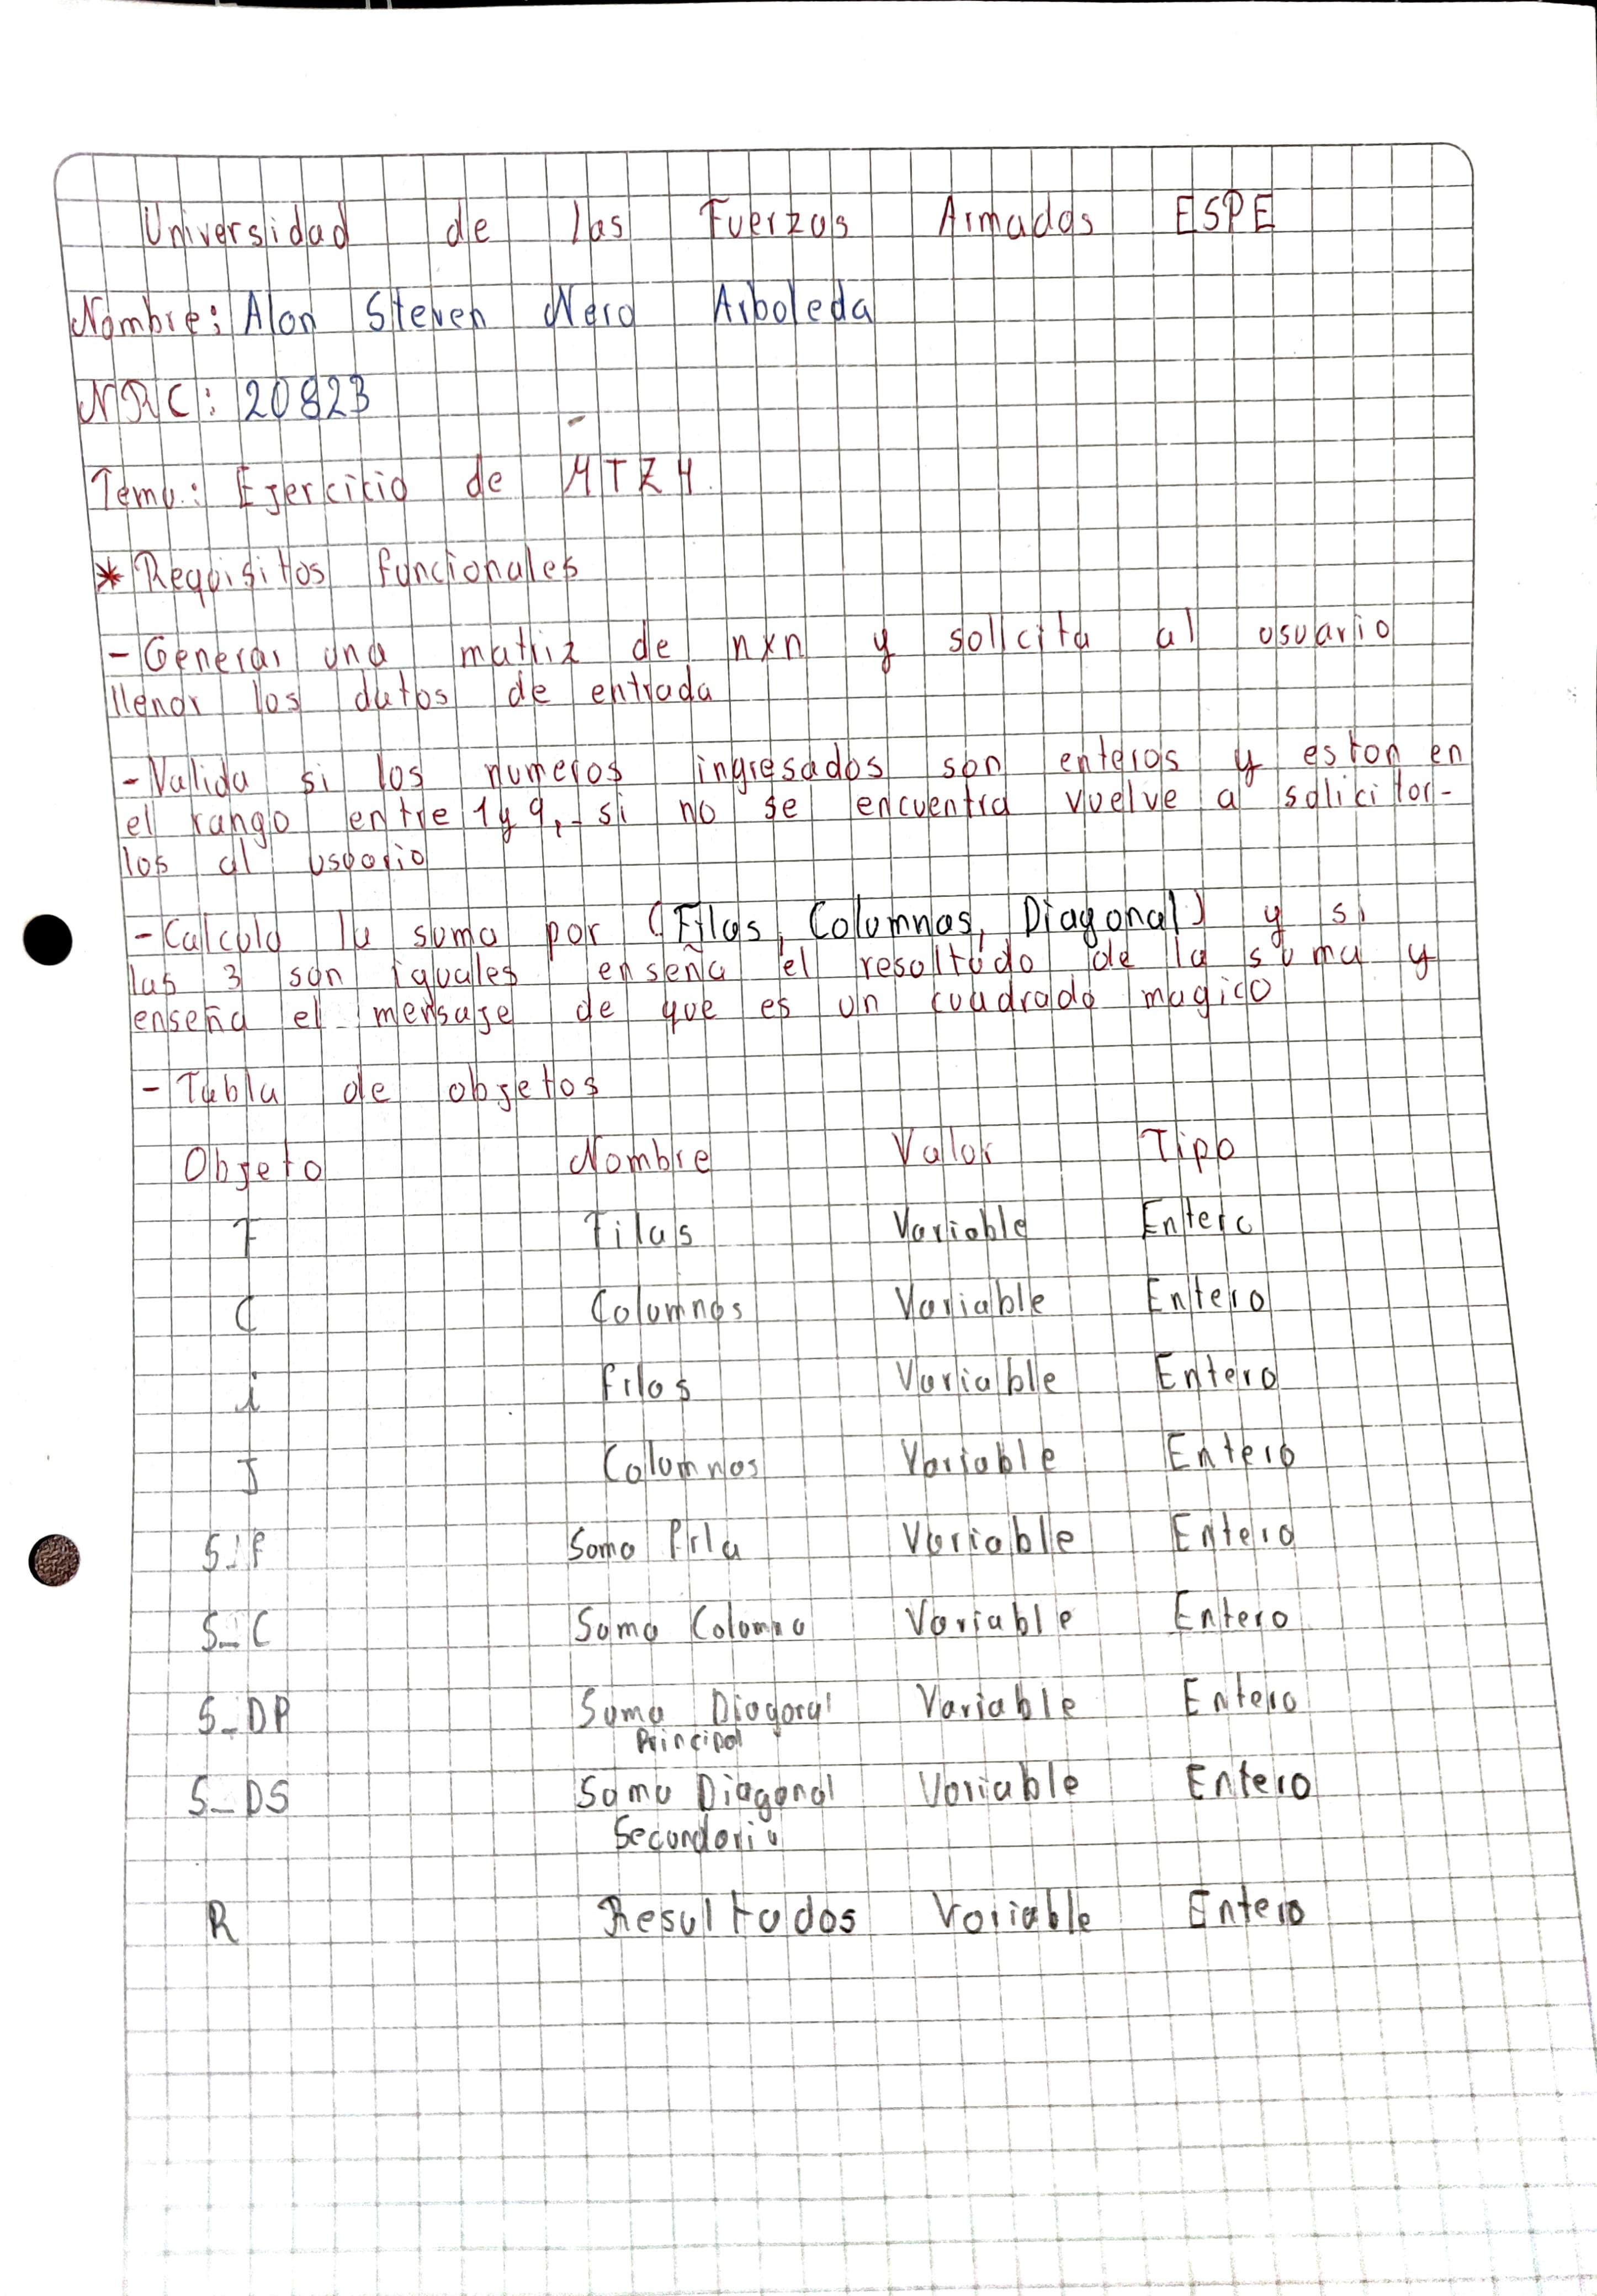 Universidad de las Fuerzas Armadas ESPE
Nombre: Alan Steven Nera Arboleda
NRC: 20823
Tema: Ejercicio de MTZ4.
* Requisitos funcionales
- Generar una matriz de nxn y solicita al usuario
llenar los datos de entrada
- Valida si los numeros ingresados son enteros y estan en
el rango entre 1 y 9, si no se encuentra vuelve a solicitar-
los al usuario
- Calcula la suma por (Filas, Columnas, Diagonal) y si
las 3 son iguales enseña el resultado de la suma y
enseña el mensaje de que es un cuadrado magico
- Tabla de objetos
Objeto Nombre Valor Tipo
F Filas Variable Entero
C Columnas Variable Entero
i filas Variable Entero
J Columnas Variable Entero
S_F Suma Fila Variable Entero
S_C Suma Columna Variable Entero
S_DP Suma Diagonal Variable Entero
Principal
S_DS Suma Diagonal Variable Entero
Secundaria
R Resultados Variable Entero